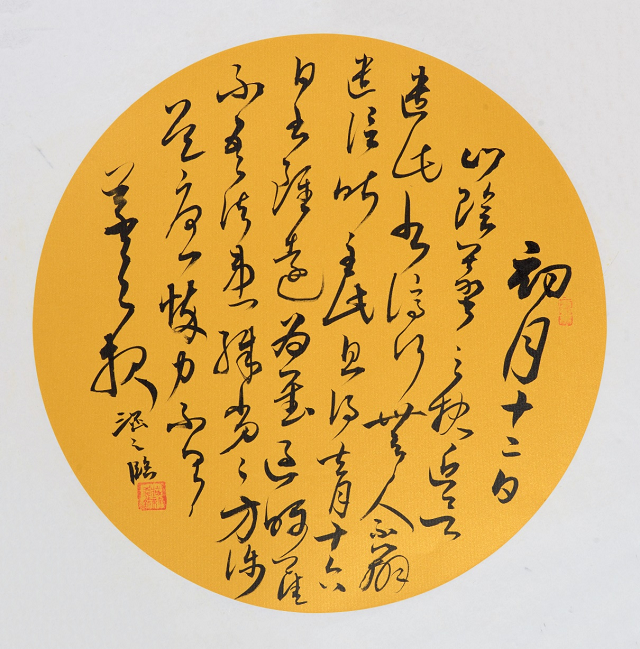 初月十二日
山陰羲之報近欲
遣此書停行無人不辦
遣信昨至此且得去月十六
日書雖遠為慰過囑卿佳
不吾諸患殊劣々方涉
道憂悴力不具
羲之報
之臨